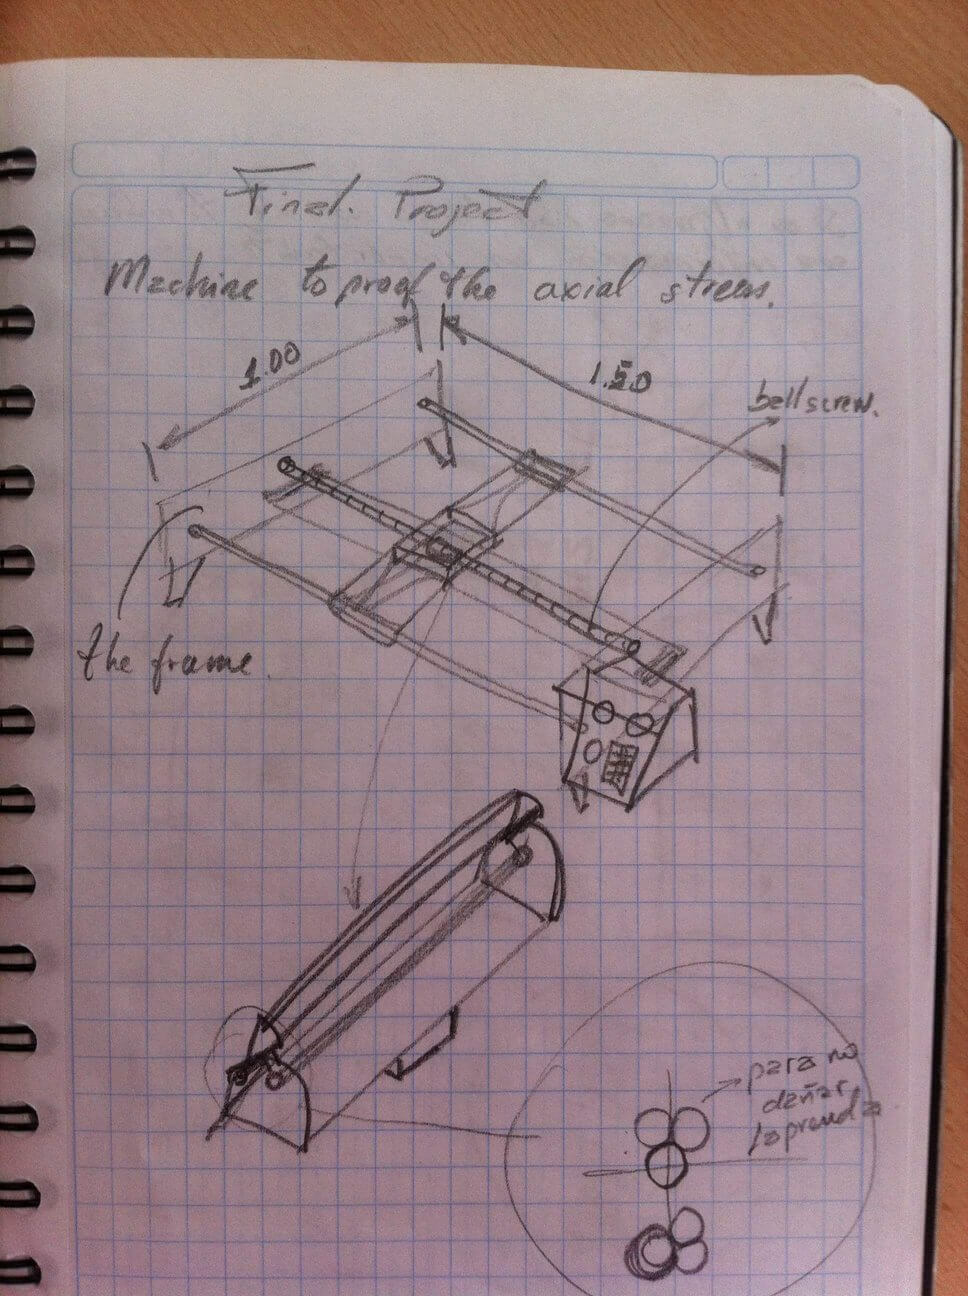 Final. Project
Machine to proof the axial stress.
1.00
1.50
ballscrew.
the frame.
para no
dañar
la prenda